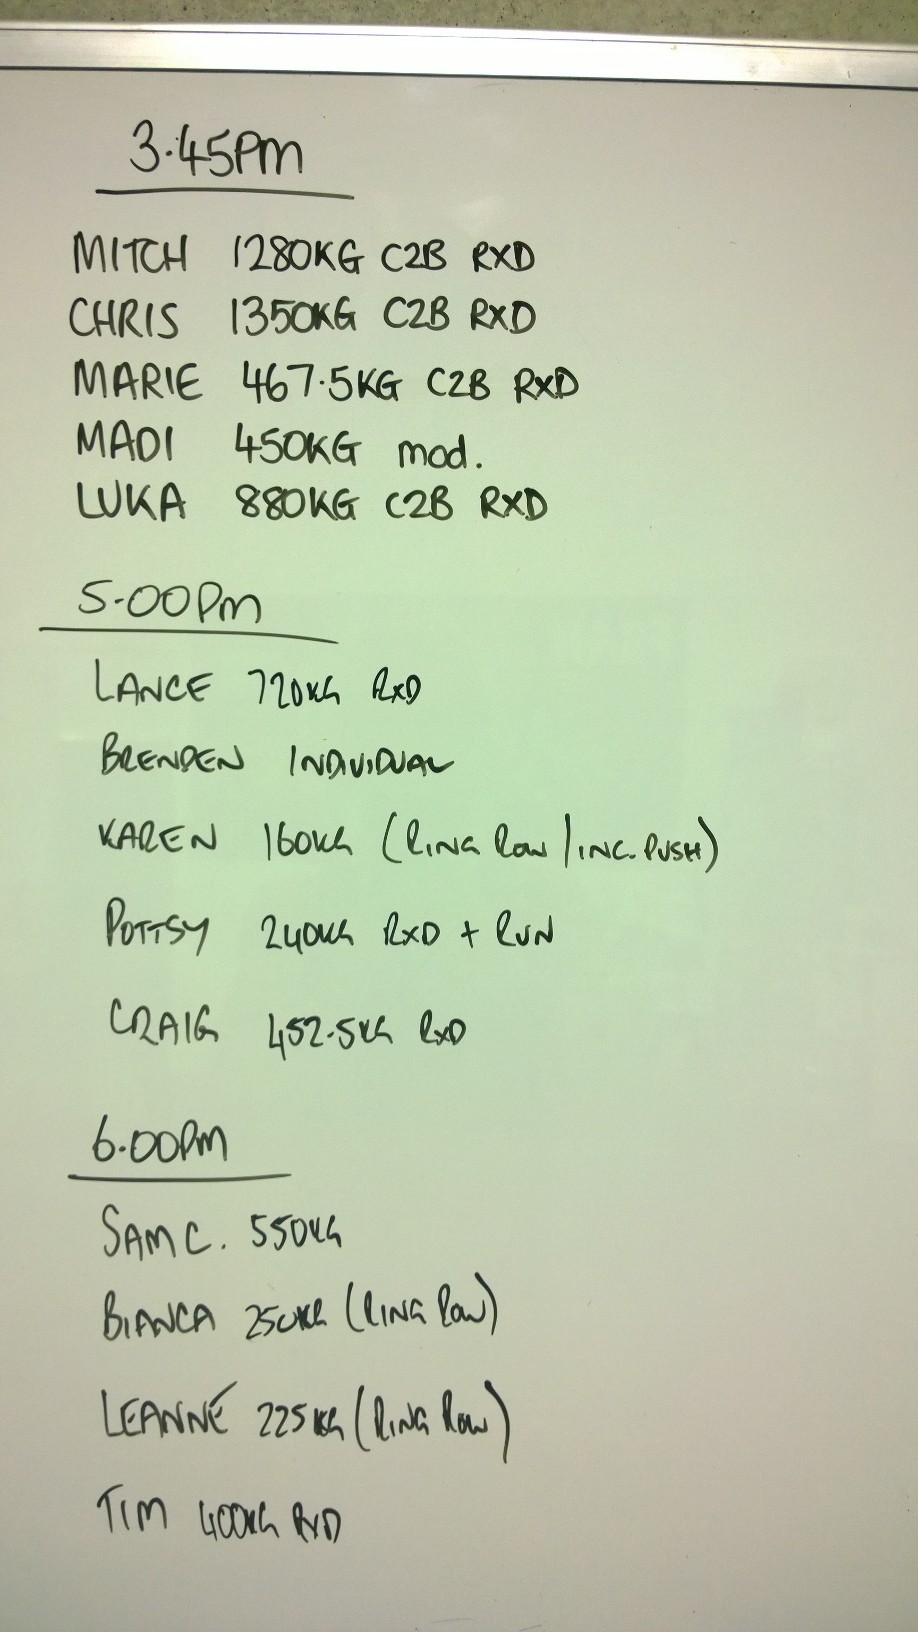 3.45PM
MITCH 1280KG C2B RXD
CHRIS 1350KG C2B RXD
MARIE 467.5KG C2B RXD
MADI 450KG mod.
LUKA 880KG C2B RXD
5.00Pm
LANCE 720KG RXD
BRENDEN INDIVIDUAL
KAREN 160KG (RING ROW / INC. PUSH)
POTTSY 240KG RXD + RUN
CRAIG 452.5KG RXD
6.00PM
SAM C. 550KG
BIANCA 250KG (RING ROW)
LEANNE 225KG (RING ROW)
TIM 400KG RXD